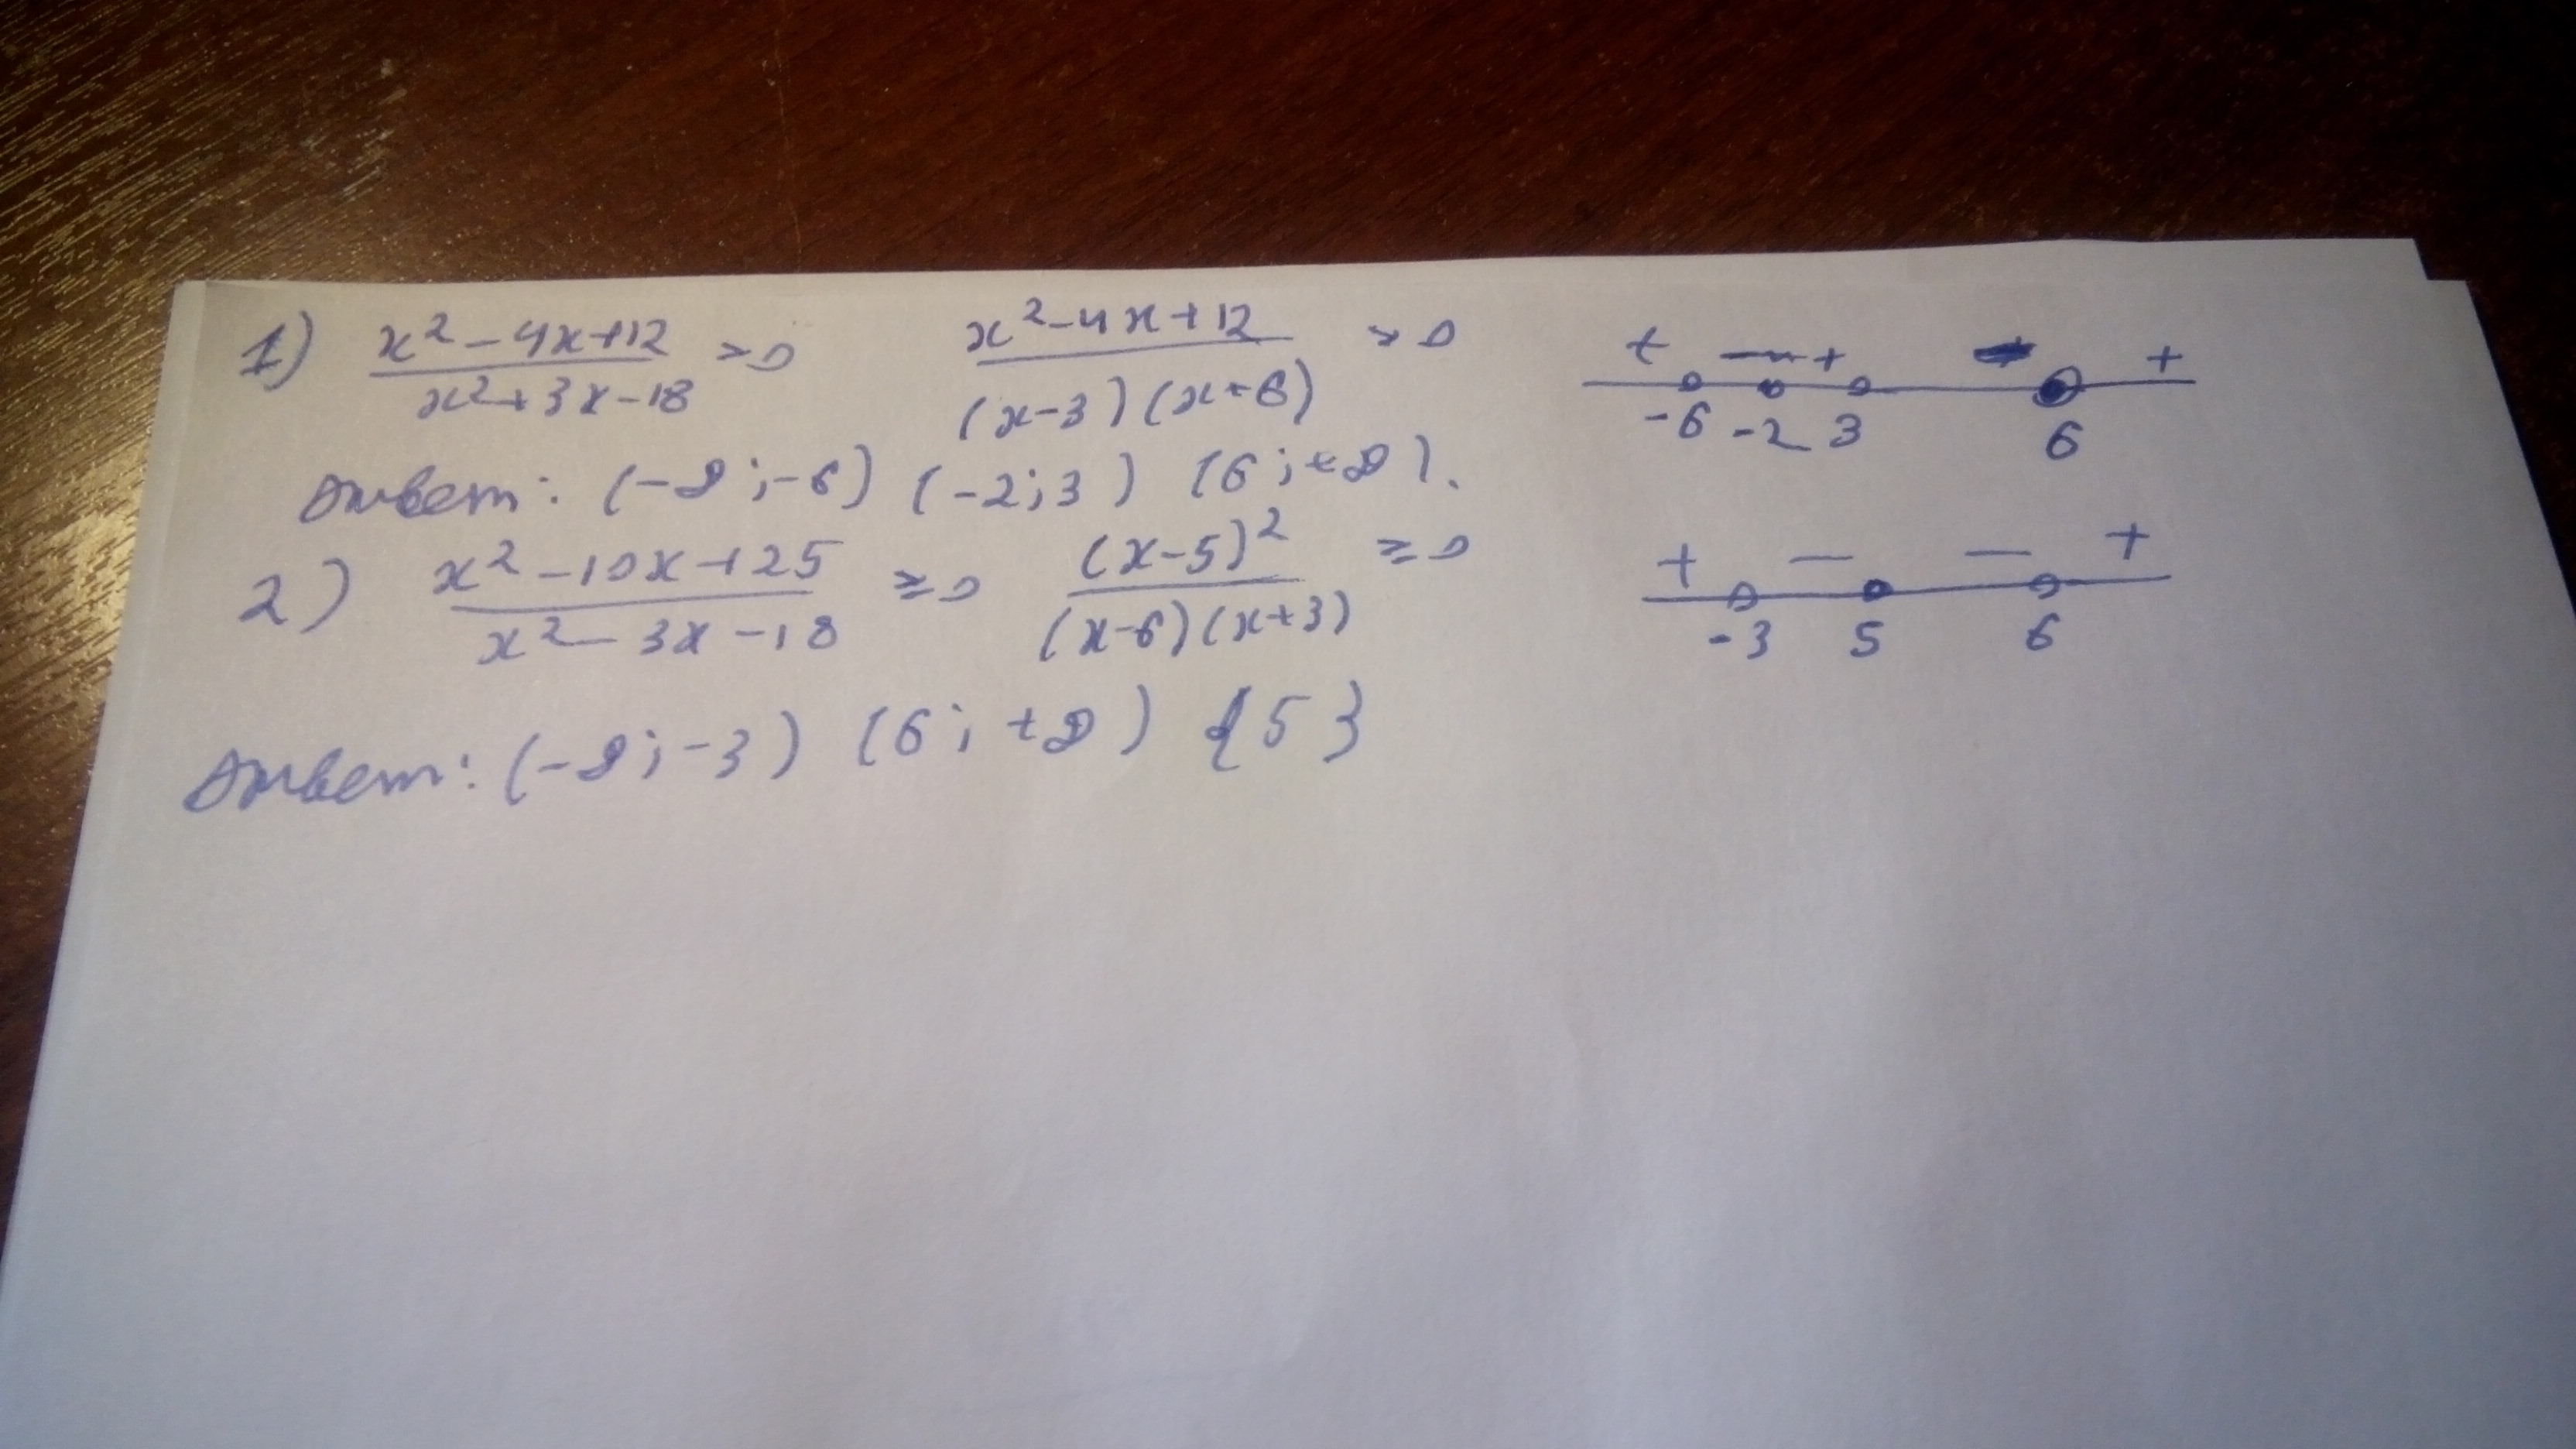 1) x²-4x+12 / x²+3x-18 >0 x²-4x+12 / (x-3)(x+6) >0 + — + - +
-6 -2 3 6
Ответ: (-∞;-6) (-2;3) (6;+∞).
2) x²-10x+25 / x²-3x-18 ≥0 (x-5)² / (x-6)(x+3) ≥0 + — — +
-3 5 6
Ответ: (-∞;-3) (6;+∞) {5}